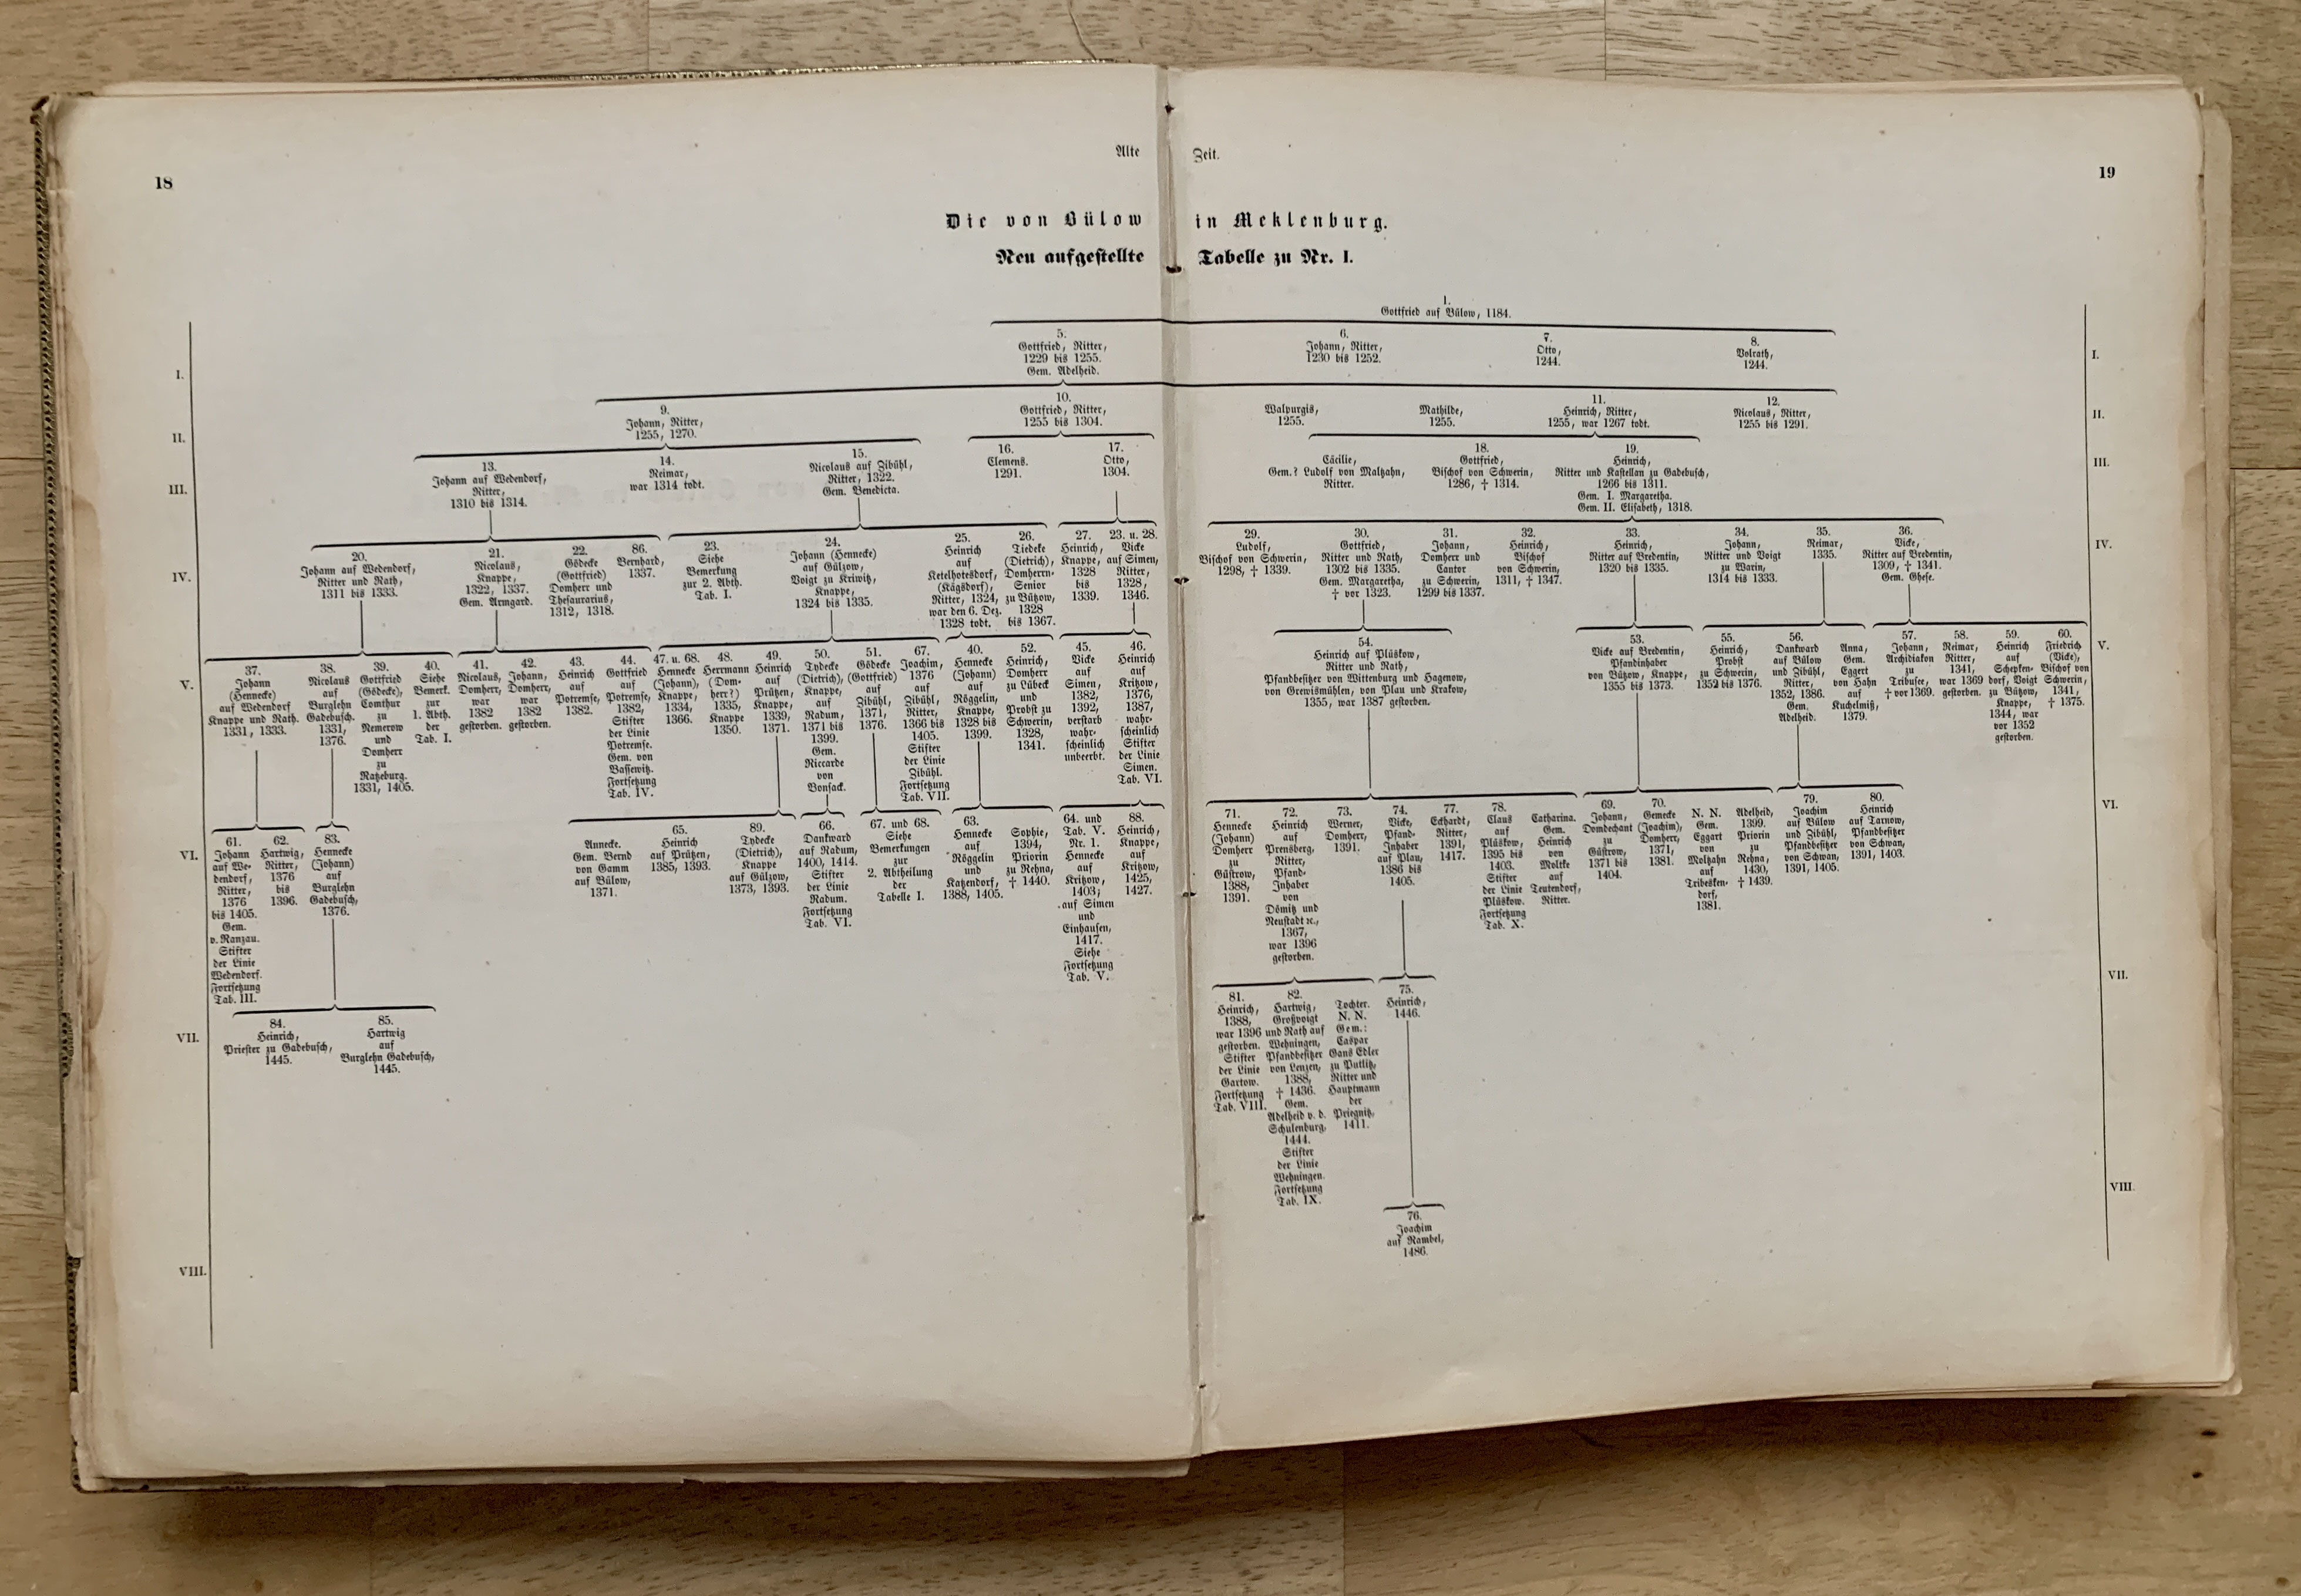 18
Alte Zeit.
19
Die von Bülow in Meklenburg.
Neu aufgestellte Tabelle zu Nr. I.
1.
Gottfried auf Bülow, 1184.
I.
5.
Gottfried, Ritter,
1229 bis 1255.
Gem. Adelheid.
6.
Johann, Ritter,
1230 bis 1252.
7.
Otto,
1244.
8.
Volrath,
1244.
I.
II.
9.
Johann, Ritter,
1255, 1270.
10.
Gottfried, Ritter,
1255 bis 1304.
Walpurgis,
1255.
Mathilde,
1255.
11.
Heinrich, Ritter,
1255, war 1267 todt.
12.
Nicolaus, Ritter,
1255 bis 1291.
II.
III.
13.
Johann auf Wedendorf,
Ritter,
1310 bis 1314.
14.
Reimar,
war 1314 todt.
15.
Nicolaus auf Zibühl,
Ritter, 1322.
Gem. Benedicta.
16.
Clemens.
1291.
17.
Otto,
1304.
Cäcilie,
Gem.? Ludolf von Maltzahn,
Ritter.
18.
Gottfried,
Bischof von Schwerin,
1286, † 1314.
19.
Heinrich,
Ritter und Kastellan zu Gadebusch,
1266 bis 1311.
Gem. I. Margaretha.
Gem. II. Elisabeth, 1318.
III.
IV.
20.
Johann auf Wedendorf,
Ritter und Rath,
1311 bis 1333.
21.
Nicolaus,
Knappe,
1322, 1337.
Gem. Armgard.
22.
Gödeke
(Gottfried)
Domherr und
Thesaurarius,
1312, 1318.
86.
Bernhard,
1337.
23.
Siehe
Bemerkung
zur 2. Abth.
Tab. I.
24.
Johann (Hennecke)
auf Gülzow,
Voigt zu Kriwitz,
Knappe,
1324 bis 1335.
25.
Heinrich
auf
Ketelhotesdorf,
(Kägsdorf),
Ritter, 1324,
war den 6. Dez.
1328 todt.
26.
Tiedeke
(Dietrich),
Domherrn-
Senior
zu Bützow,
1328
bis 1367.
27.
Heinrich,
Knappe,
1328
bis
1339.
23. u. 28.
Vicke
auf Simen,
Ritter,
1328,
1346.
29.
Ludolf,
Bischof von Schwerin,
1298, † 1339.
30.
Gottfried,
Ritter und Rath,
1302 bis 1335.
Gem. Margaretha,
† vor 1323.
31.
Johann,
Domherr und
Cantor
zu Schwerin,
1299 bis 1337.
32.
Heinrich,
Bischof
von Schwerin,
1311, † 1347.
33.
Heinrich,
Ritter auf Bredentin,
1320 bis 1335.
34.
Johann,
Ritter und Voigt
zu Warin,
1314 bis 1333.
35.
Reimar,
1335.
36.
Vicke,
Ritter auf Bredentin,
1309, † 1341.
Gem. Ghese.
IV.
V.
37.
Johann
(Hennecke)
auf Wedendorf
Knappe und Rath.
1331, 1333.
38.
Nicolaus
auf
Burglehn
Gadebusch.
1331,
1376.
39.
Gottfried
(Gödecke),
Comthur
zu
Nemerow
und
Domherr
zu
Ratzeburg.
1331, 1405.
40.
Siehe
Bemerk.
zur
1. Abth.
der
Tab. I.
41.
Nicolaus,
Domherr,
war
1382
gestorben.
42.
Johann,
Domherr,
war
1382
gestorben.
43.
Heinrich
auf
Potremse,
1382.
44.
Gottfried
auf
Potremse,
1382,
Stifter
der Linie
Potremse.
Gem. von
Bassewitz.
Fortsetzung
Tab. IV.
47. u. 68.
Hennecke
(Johann),
Knappe,
1334,
1366.
48.
Herrmann
(Dom-
herr?)
1335,
Knappe
1350.
49.
Heinrich
auf
Prützen,
Knappe,
1339,
1371.
50.
Tydecke
(Dietrich),
Knappe,
auf
Radum,
1371 bis
1399.
Gem.
Riccarde
von
Bonsack.
51.
Gödecke
(Gottfried)
auf
Zibühl,
1371,
1376.
67.
Joachim,
1376
auf
Zibühl,
Ritter,
1366 bis
1405.
Stifter
der Linie
Zibühl.
Fortsetzung
Tab. VII.
40.
Hennecke
(Johann)
auf
Röggelin,
Knappe,
1328 bis
1399.
52.
Heinrich,
Domherr
zu Lübeck
und
Probst zu
Schwerin,
1328,
1341.
45.
Vicke
auf
Simen,
1382,
1392,
verstarb
wahr-
scheinlich
unbeerbt.
46.
Heinrich
auf
Kritzow,
1376,
1387,
wahr-
scheinlich
Stifter
der Linie
Simen.
Tab. VI.
54.
Heinrich auf Plüskow,
Ritter und Rath,
Pfandbesitzer von Wittenburg und Hagenow,
von Grewismühlen, von Plau und Krakow,
1355, war 1387 gestorben.
53.
Vicke auf Bredentin,
Pfandinhaber
von Bützow, Knappe,
1355 bis 1373.
55.
Heinrich,
Probst
zu Schwerin,
1352 bis 1376.
56.
Dankward
auf Bülow
und Zibühl,
Ritter,
1352, 1386.
Gem.
Adelheid.
Anna,
Gem.
Eggert
von Hahn
auf
Kuchelmiß,
1379.
57.
Johann,
Archidiakon
zu
Tribusee,
† vor 1369.
58.
Reimar,
Ritter,
1341,
war 1369
gestorben.
59.
Heinrich
auf
Schepken-
dorf, Voigt
zu Bützow,
Knappe,
1344, war
vor 1352
gestorben.
60.
Friedrich
(Vicke),
Bischof von
Schwerin,
1341,
† 1375.
V.
VI.
61.
Johann
auf We-
dendorf,
Ritter,
1376
bis 1405.
Gem.
v. Ranzau.
Stifter
der Linie
Wedendorf.
Fortsetzung
Tab. III.
62.
Hartwig,
Ritter,
1376
bis
1396.
83.
Hennecke
(Johann)
auf
Burglehn
Gadebusch,
1376.
Annecke.
Gem. Bernd
von Gamm
auf Bülow,
1371.
65.
Heinrich
auf Prützen,
1385, 1393.
89.
Tydecke
(Dietrich),
Knappe
auf Gülzow,
1373, 1393.
66.
Dankward
auf Radum,
1400, 1414.
Stifter
der Linie
Radum.
Fortsetzung
Tab. VI.
67. und 68.
Siehe
Bemerkungen
zur
2. Abtheilung
der
Tabelle I.
63.
Hennecke
auf
Röggelin
und
Katzendorf,
1388, 1405.
Sophie,
1394,
Priorin
zu Rehna,
† 1440.
64. und
Tab. V.
Nr. 1.
Hennecke
auf
Kritzow,
1403;
auf Simen
und
Einhausen,
1417.
Siehe
Fortsetzung
Tab. V.
88.
Heinrich,
Knappe,
auf
Kritzow,
1425,
1427.
71.
Hennecke
(Johann)
Domherr
zu
Güstrow,
1388,
1391.
72.
Heinrich
auf
Prensberg,
Ritter,
Pfand-
Inhaber
von
Dömitz und
Neustadt ꝛc.,
1367,
war 1396
gestorben.
73.
Werner,
Domherr,
1391.
74.
Vicke,
Pfand-
Inhaber
auf Plau,
1386 bis
1405.
77.
Eckhardt,
Ritter,
1391,
1417.
78.
Claus
auf
Plüskow,
1395 bis
1403.
Stifter
der Linie
Plüskow.
Fortsetzung
Tab. X.
Catharina.
Gem.
Heinrich
von
Moltke
auf
Teutendorf,
Ritter.
69.
Johann,
Domdechant
zu
Güstrow,
1371 bis
1404.
70.
Gemecke
(Joachim),
Domherr,
1371,
1381.
N. N.
Gem.
Eggart
von
Moltzahn
auf
Tribesken-
dorf,
1381.
Adelheid,
1399.
Priorin
zu
Rehna,
1430,
† 1439.
79.
Joachim
auf Bülow
und Zibühl,
Pfandbesitzer
von Schwan,
1391, 1405.
80.
Heinrich
auf Tarnow,
Pfandbesitzer
von Schwan,
1391, 1403.
VI.
VII.
84.
Heinrich,
Priester zu Gadebusch,
1445.
85.
Hartwig
auf
Burglehn Gadebusch,
1445.
81.
Heinrich,
1388,
war 1396
gestorben.
Stifter
der Linie
Gartow.
Fortsetzung
Tab. VIII.
82.
Hartwig,
Großvoigt
und Rath auf
Wehningen,
Pfandbesitzer
von Lenzen,
1388,
† 1436.
Gem.
Adelheid v. d.
Schulenburg,
1444.
Stifter
der Linie
Wehningen.
Fortsetzung
Tab. IX.
Tochter.
N. N.
Gem.:
Caspar
Gans Edler
zu Putlitz,
Ritter und
Hauptmann
der
Priegnitz,
1411.
75.
Heinrich,
1446.
VII.
VIII.
76.
Joachim
auf Rambel,
1486.
VIII.